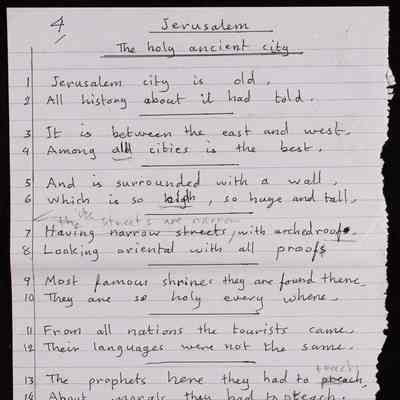 4
Jerusalem
The holy ancient city
1 Jerusalem city is old.
2 All history about it had told.
3 It is between the east and west.
4 Among all cities is the best.
5 And is surrounded with a wall.
6 which is so high, so huge and tall.
the streets are narrow
7 Having narrow streets, with arched roofs.
8 Looking oriental with all proofs
9 Most famous shrines they are found there.
10 They are so holy every where.
11 From all nations the tourists came.
12 Their languages were not the same.
teach
13 The prophets here they had to preach,
14 About morals they had to teach.